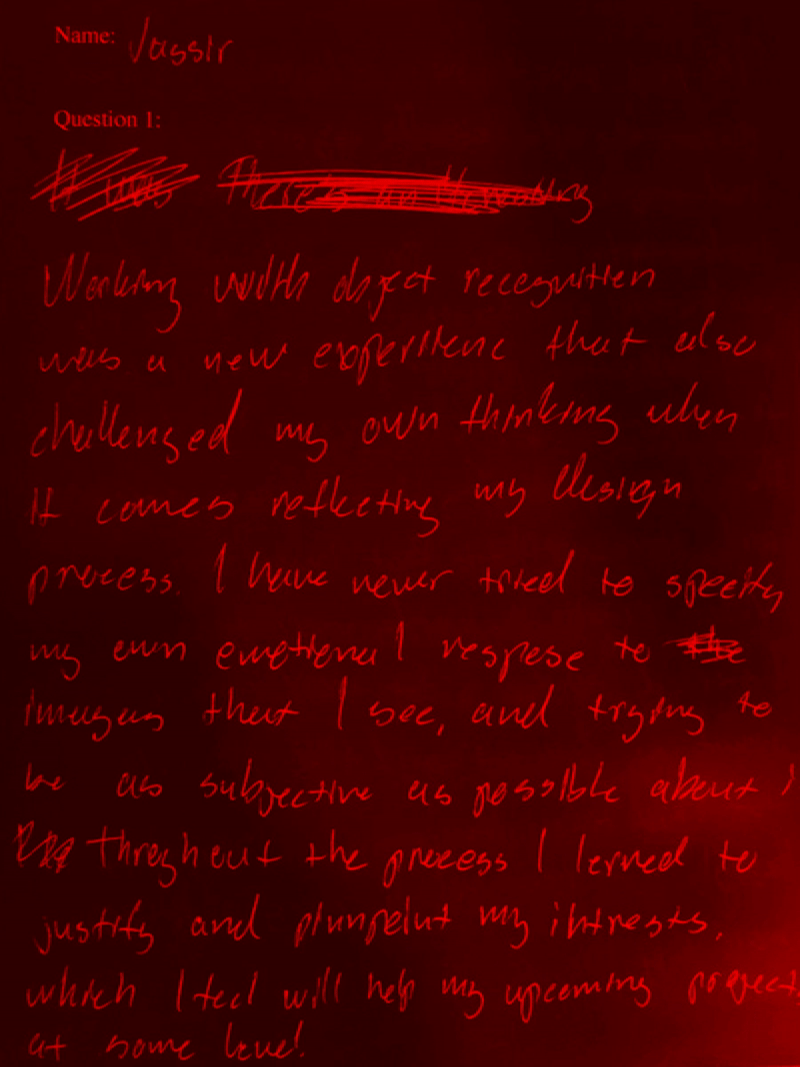 Name: Jassir
Question 1:
Working with object recognition
was a new experience that also
challenged my own thinking when
it comes reflecting my design
process. I have never tried to specify
my own emotional respose to
images that I see, and trying to
be as subjective as possible about
throghout the process I lerned to
justify and pinnpoint my intrests,
which I feel will help my upcoming project,
at some level.